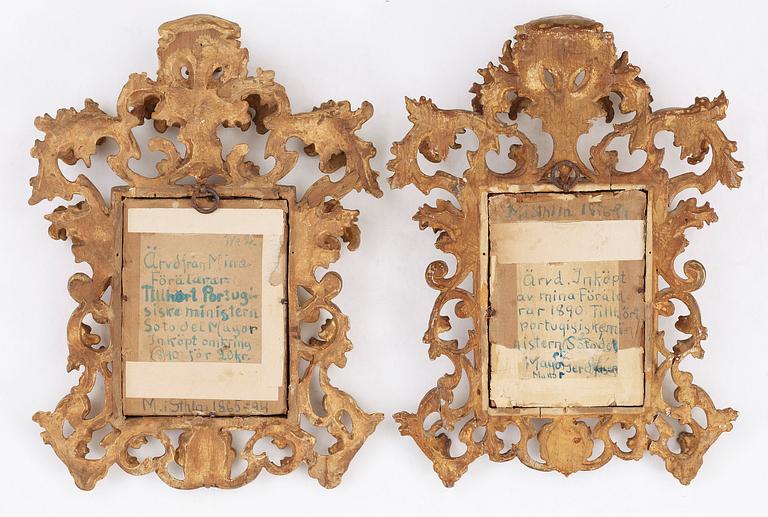 Ärvd från Mina
Föräldrar.
Tillhört Portugi-
siske ministern
Soto del Mayor
Inköpt omkring
1890 för 20kr.
M. i Sthlm 1865-94
M. i Sthlm
Ärvd. Inköpt
av mina Föräld-
rar 1890 Tillhört
portugisiske mi-
nistern Sotodel
Mayor